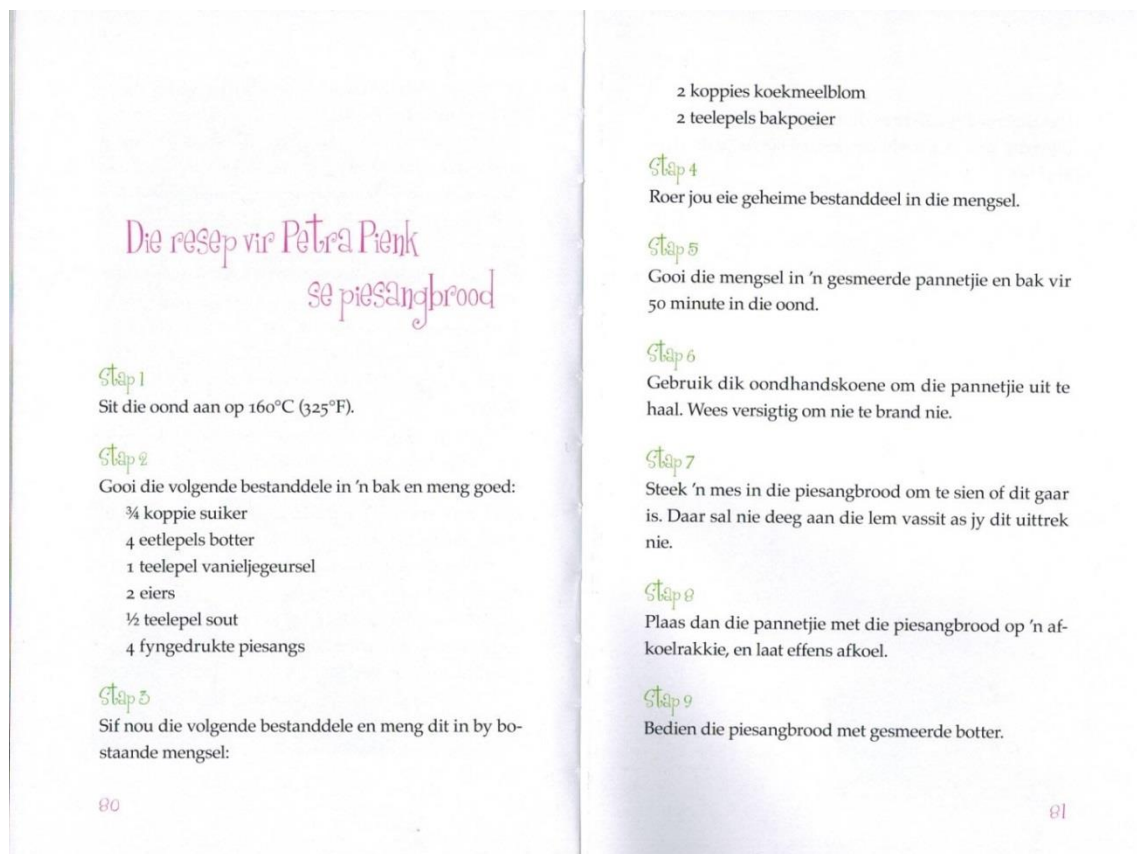 Die resep vir Petra Pienk
se piesangbrood
Stap 1
Sit die oond aan op 160°C (325°F).
Stap 2
Gooi die volgende bestanddele in 'n bak en meng goed:
¾ koppie suiker
4 eetlepels botter
1 teelepel vanieljegeursel
2 eiers
½ teelepel sout
4 fyngedrukte piesangs
Stap 3
Sif nou die volgende bestanddele en meng dit in by bo-
staande mengsel:
80
2 koppies koekmeelblom
2 teelepels bakpoeier
Stap 4
Roer jou eie geheime bestanddeel in die mengsel.
Stap 5
Gooi die mengsel in 'n gesmeerde pannetjie en bak vir
50 minute in die oond.
Stap 6
Gebruik dik oondhandskoene om die pannetjie uit te
haal. Wees versigtig om nie te brand nie.
Stap 7
Steek 'n mes in die piesangbrood om te sien of dit gaar
is. Daar sal nie deeg aan die lem vassit as jy dit uittrek
nie.
Stap 8
Plaas dan die pannetjie met die piesangbrood op 'n af-
koelrakkie, en laat effens afkoel.
Stap 9
Bedien die piesangbrood met gesmeerde botter.
81